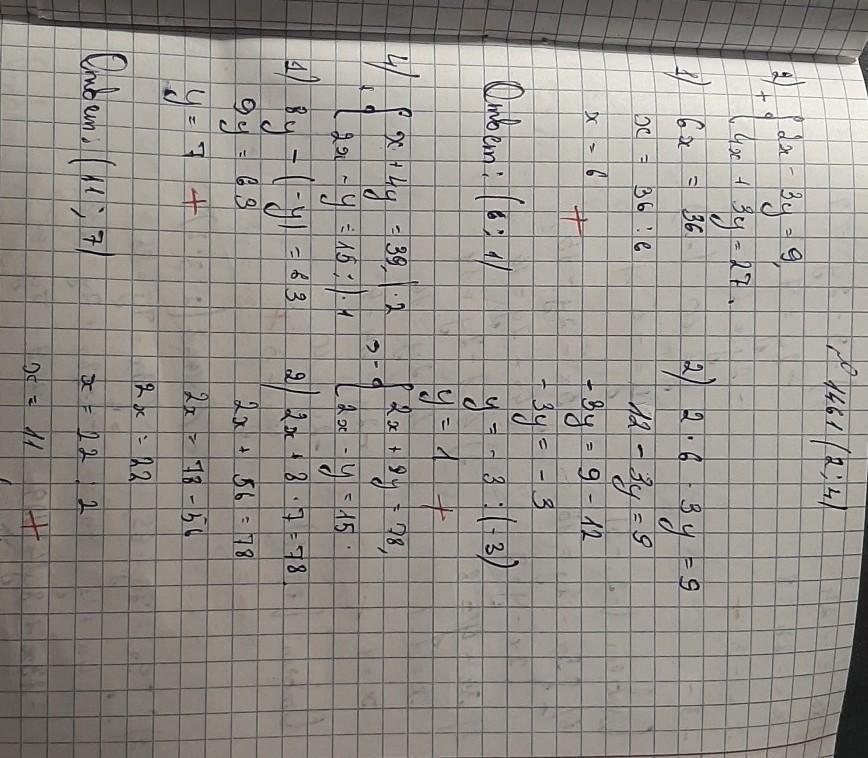 № 1461 (2; 4)
2) + { 2x - 3y = 9,
4x + 3y = 27.
1) 6x = 36
x = 36 : 6
x = 6 +
2) 2 · 6 - 3y = 9
12 - 3y = 9
-3y = 9 - 12
-3y = -3
y = -3 : (-3)
y = 1 +
Ответ: (6; 1)
4) { x + 4y = 39, | · 2
2x - y = 15; | · 1
=> - { 2x + 8y = 78,
2x - y = 15.
1) 8y - (-y) = 63
9y = 63
y = 7 +
2) 2x + 8 · 7 = 78
2x + 56 = 78
2x = 78 - 56
2x = 22
x = 22 : 2
x = 11 +
Ответ: (11; 7)